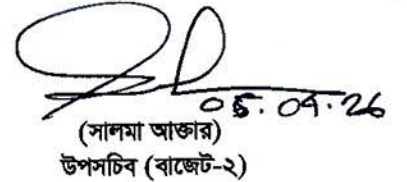 05.04.26
(সালমা আক্তার)
উপসচিব (বাজেট-২)